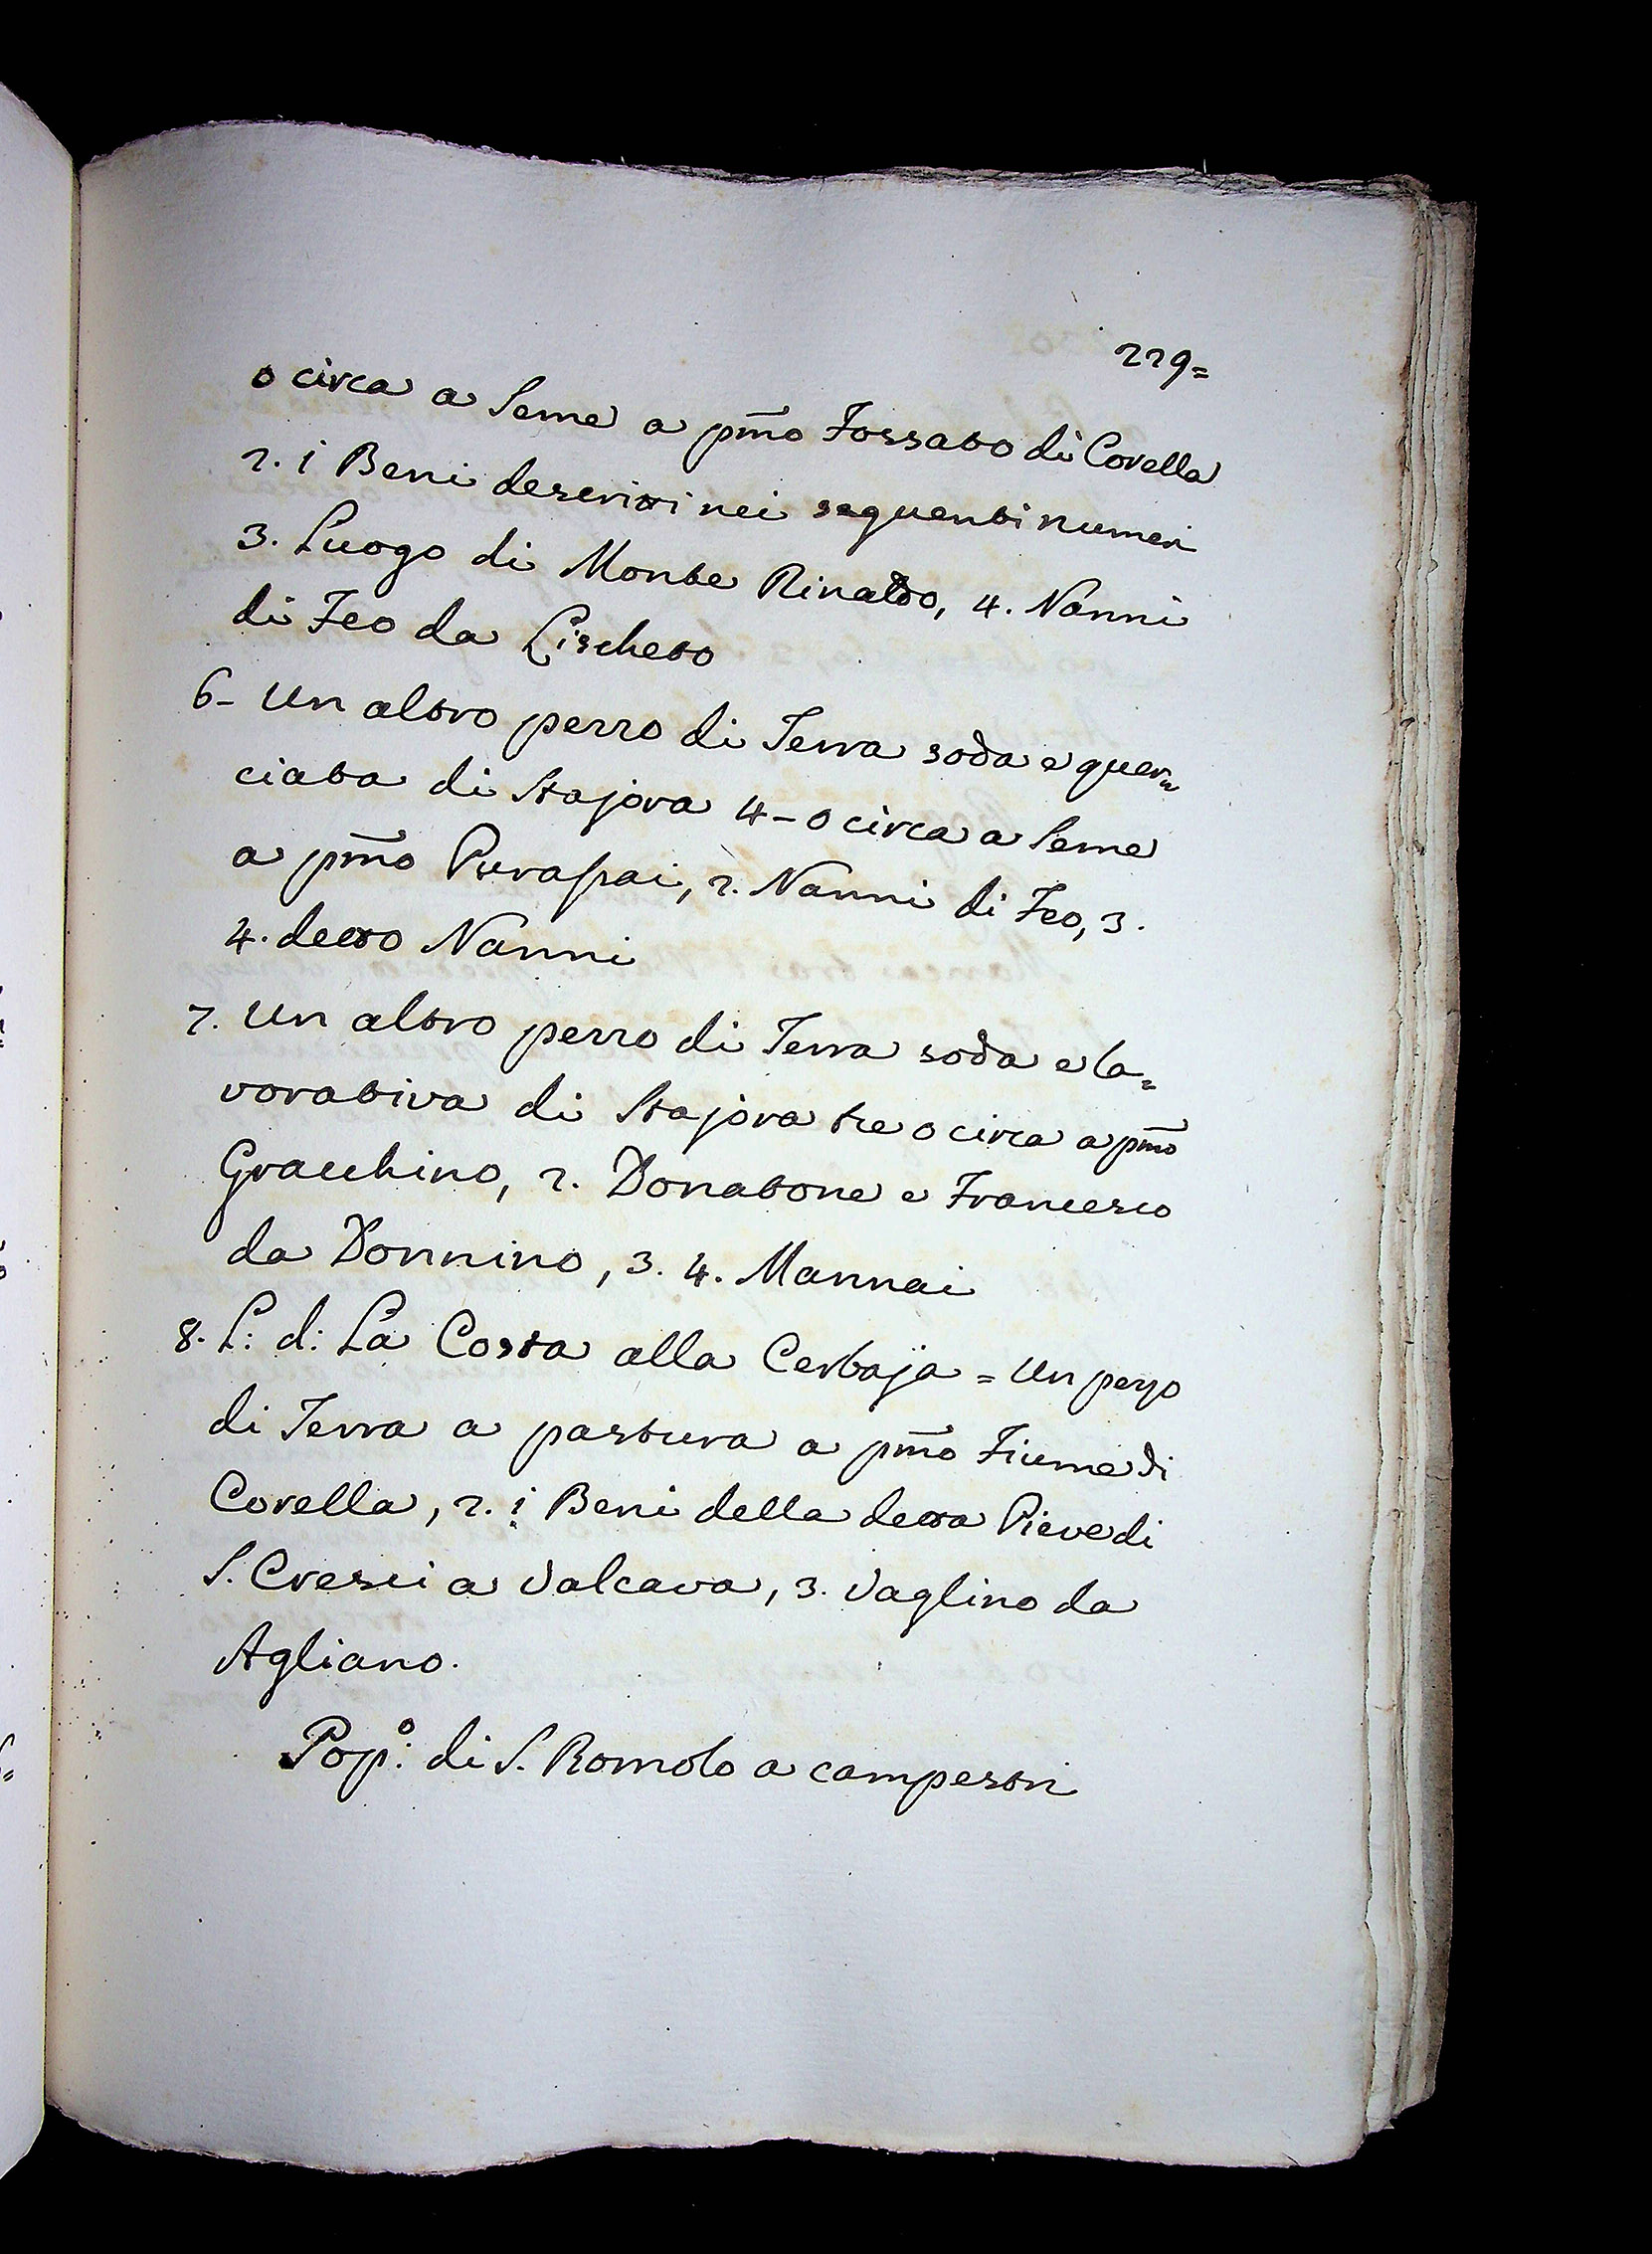 229=
o circa a Seme a pmo Fossato di Corella
2. i Beni descritti nei seguenti numeri
3. Luogo di Monte Rinaldo, 4. Nanni
di Feo da Lischeto
6- Un altro pezzo di Terra soda e quer=
ciata di Stajora 4-o circa a Seme
a pmo Purapai, 2. Nanni di Feo, 3.
4. detto Nanni
7. Un altro pezzo di Terra soda e la=
vorativa di Stajora tre o circa a pmo
Gracchino, 2. Donatone e Francesco
da Donnino, 3. 4. Mannai
8. L: d: La Costa alla Cerbaja = Un pezzo
di Terra a pastura a pmo Fiume di
Corella, 2. i Beni della detta Pieve di
S. Cresci a Valcava, 3. Vaglino da
Agliano.
Popo: di S. Romolo a campestri